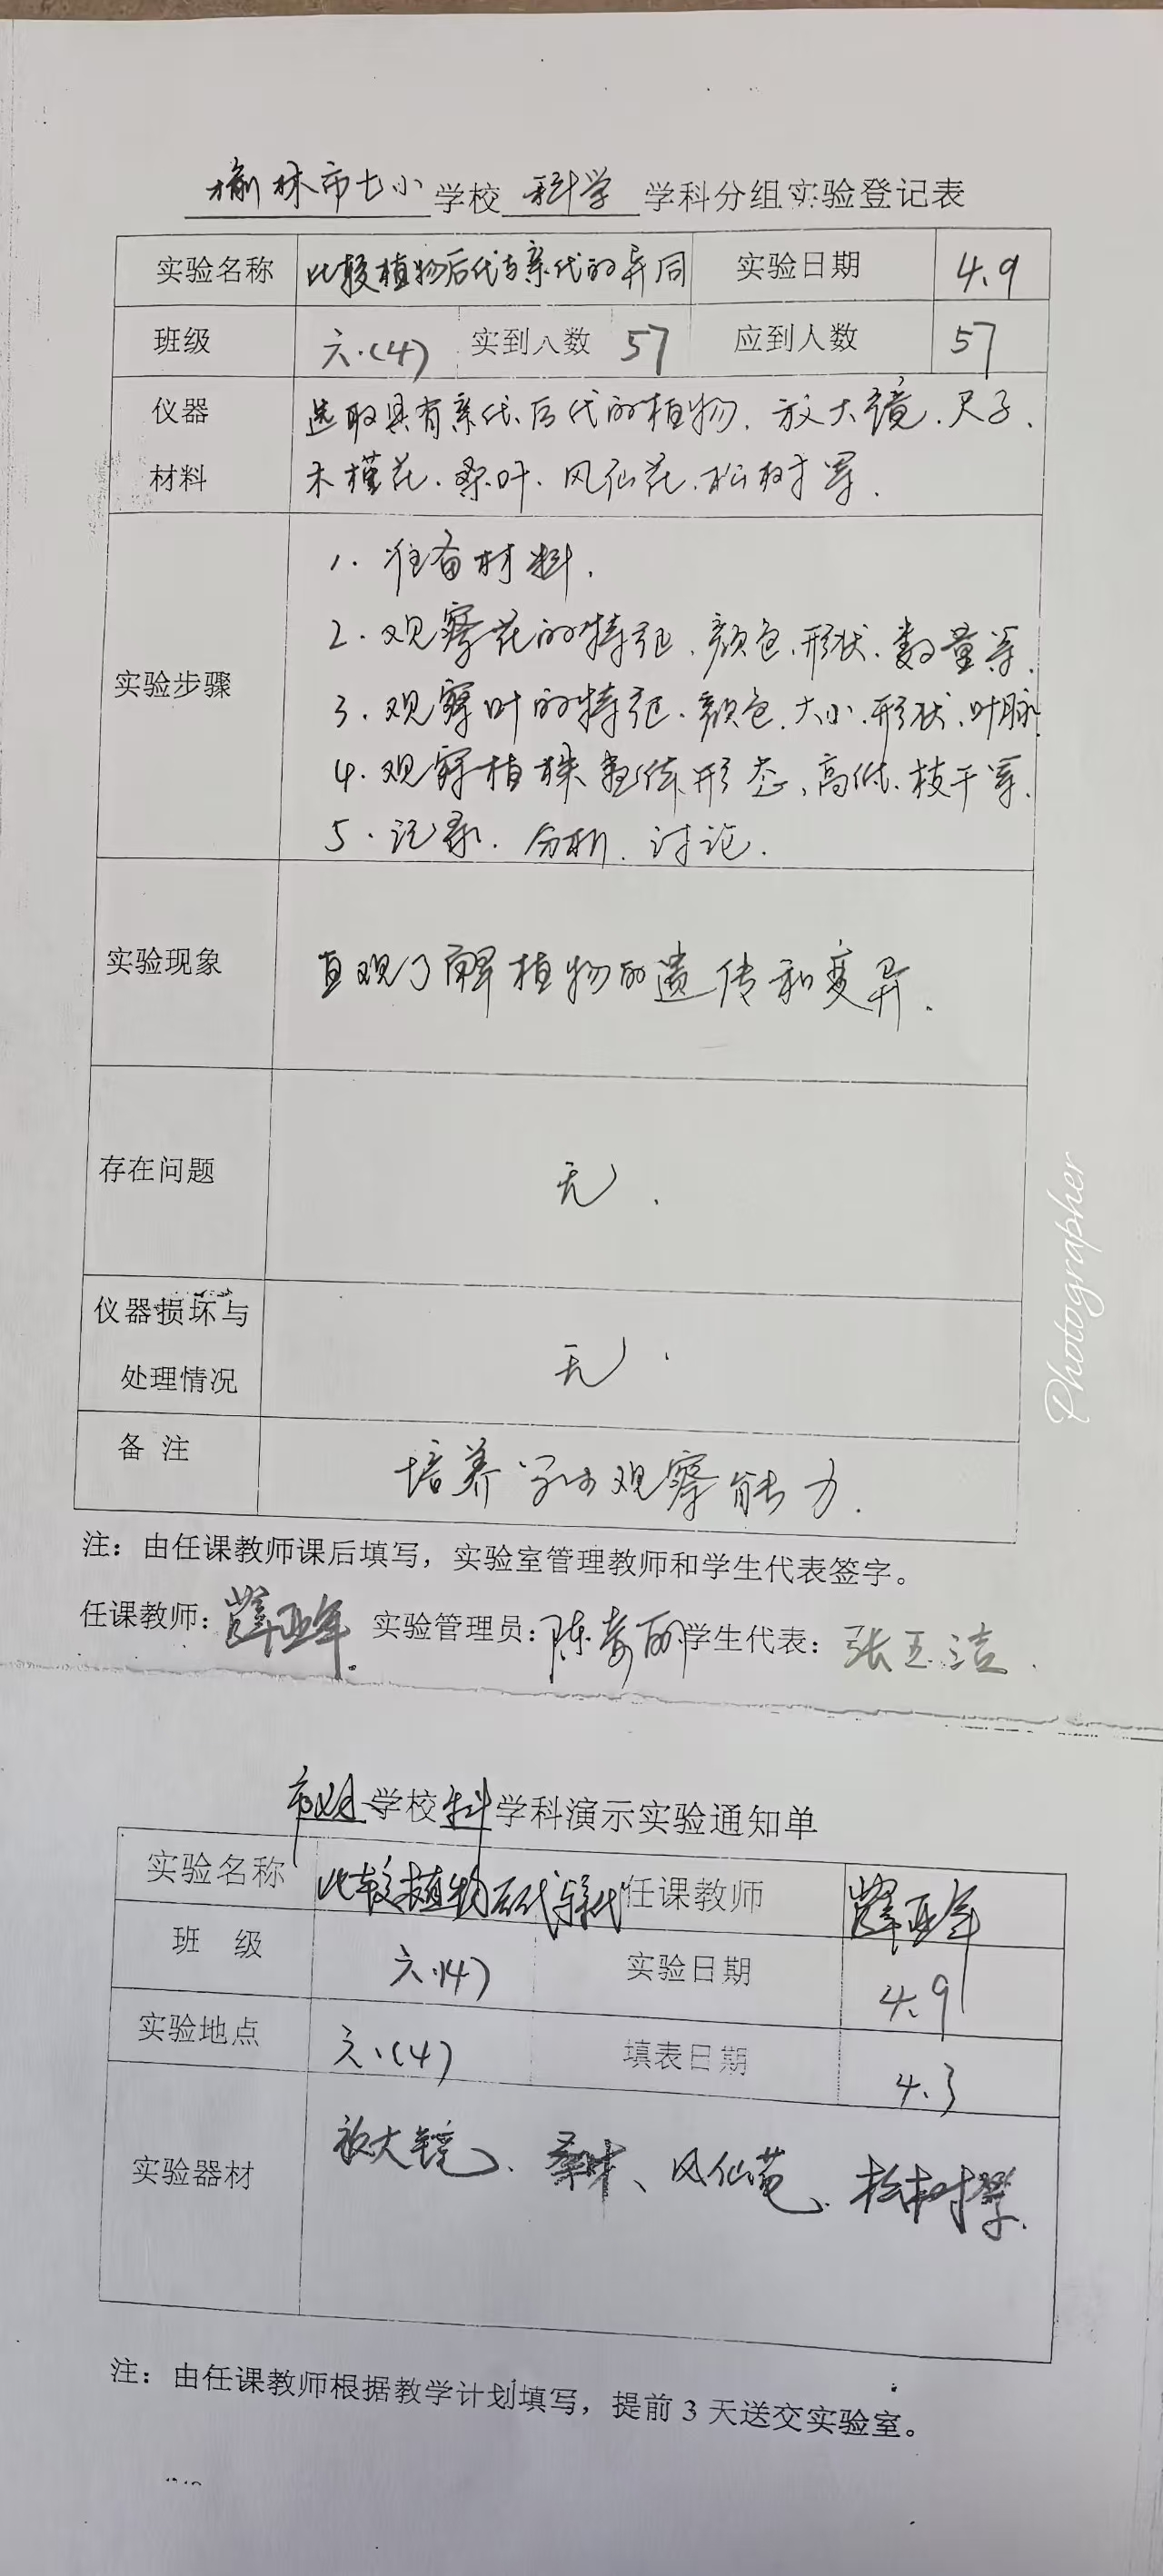 榆林市七小学校 科学 学科分组实验登记表
实验名称 比较植物后代与亲代的异同 实验日期 4.9
班级 六.(4) 实到人数 57 应到人数 57
仪器 选取具有亲代、后代的植物、放大镜、尺子、
材料 木槿花、桑叶、风仙花、松树等.
1. 准备材料.
2. 观察花的特征、颜色、形状、数量等.
实验步骤
3. 观察叶的特征、颜色、大小、形状、叶脉.
4. 观察植株整体形态、高低、枝干等.
5. 记录、分析、讨论.
实验现象 直观了解植物的遗传和变异.
存在问题 无.
仪器损坏与
处理情况 无.
备 注 培养学生观察能力.
注：由任课教师课后填写，实验室管理教师和学生代表签字。
任课教师：薛亚年 实验管理员：陈 丽 学生代表：张玉洁.
学校 科 学科演示实验通知单
实验名称 比较植物后代与亲代 任课教师 薛亚年
班 级 六.(4) 实验日期 4.9
实验地点 六.(4) 填表日期 4.3
实验器材 放大镜、桑叶、风仙花、松树等.
注：由任课教师根据教学计划填写，提前 3 天送交实验室。
Photographer